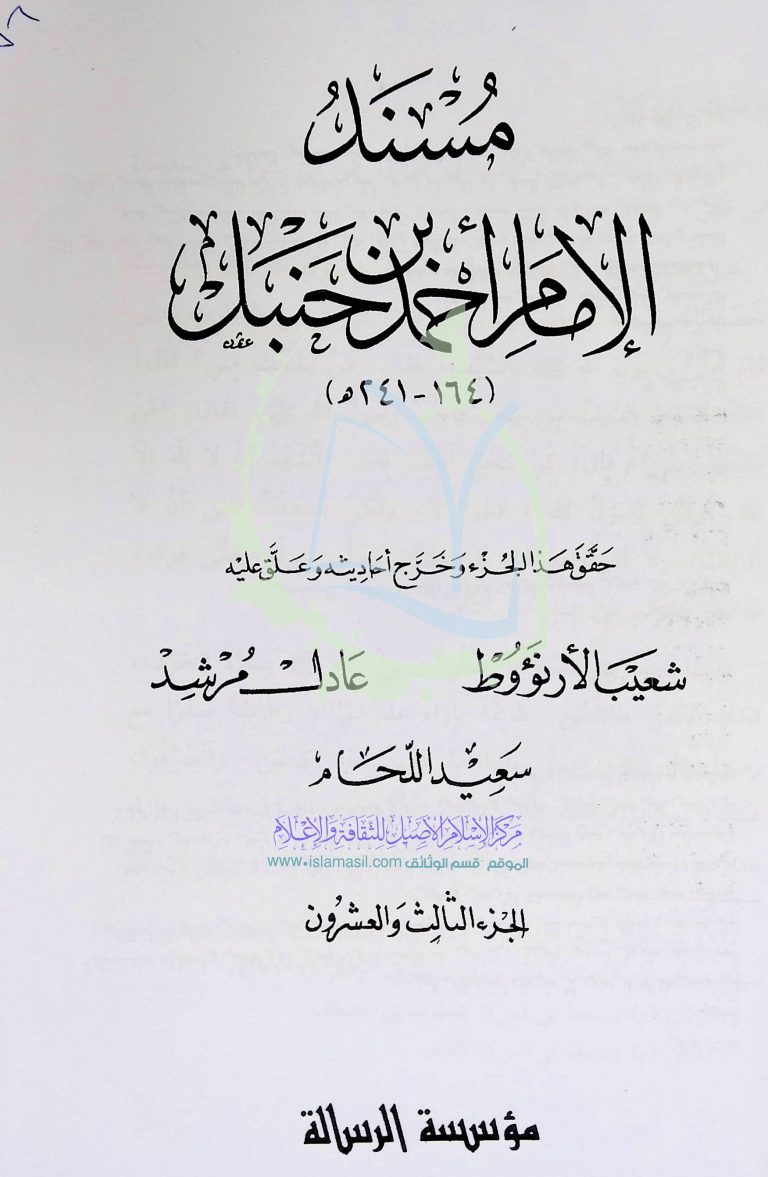 مُسْنَدُ
الإِمَامِ أَحْمَدَ بْنِ حَنْبَل
(١٦٤ - ٢٤١ هـ)
حَقَّقَ هَذا الجُزْء وَخَرَّج أحَادِيثه وَعَلَّق عليْه
شعيَب الأرنؤوُط عَادل مُرْشِد
سَعِيْد اللّحَام
مركز الإسلام الأصيل للثقافة والإعلام
الموقع قسم الوثائق www.islamasil.com
الجزء الثالث وَالعشرُون
مؤسسة الرسالة